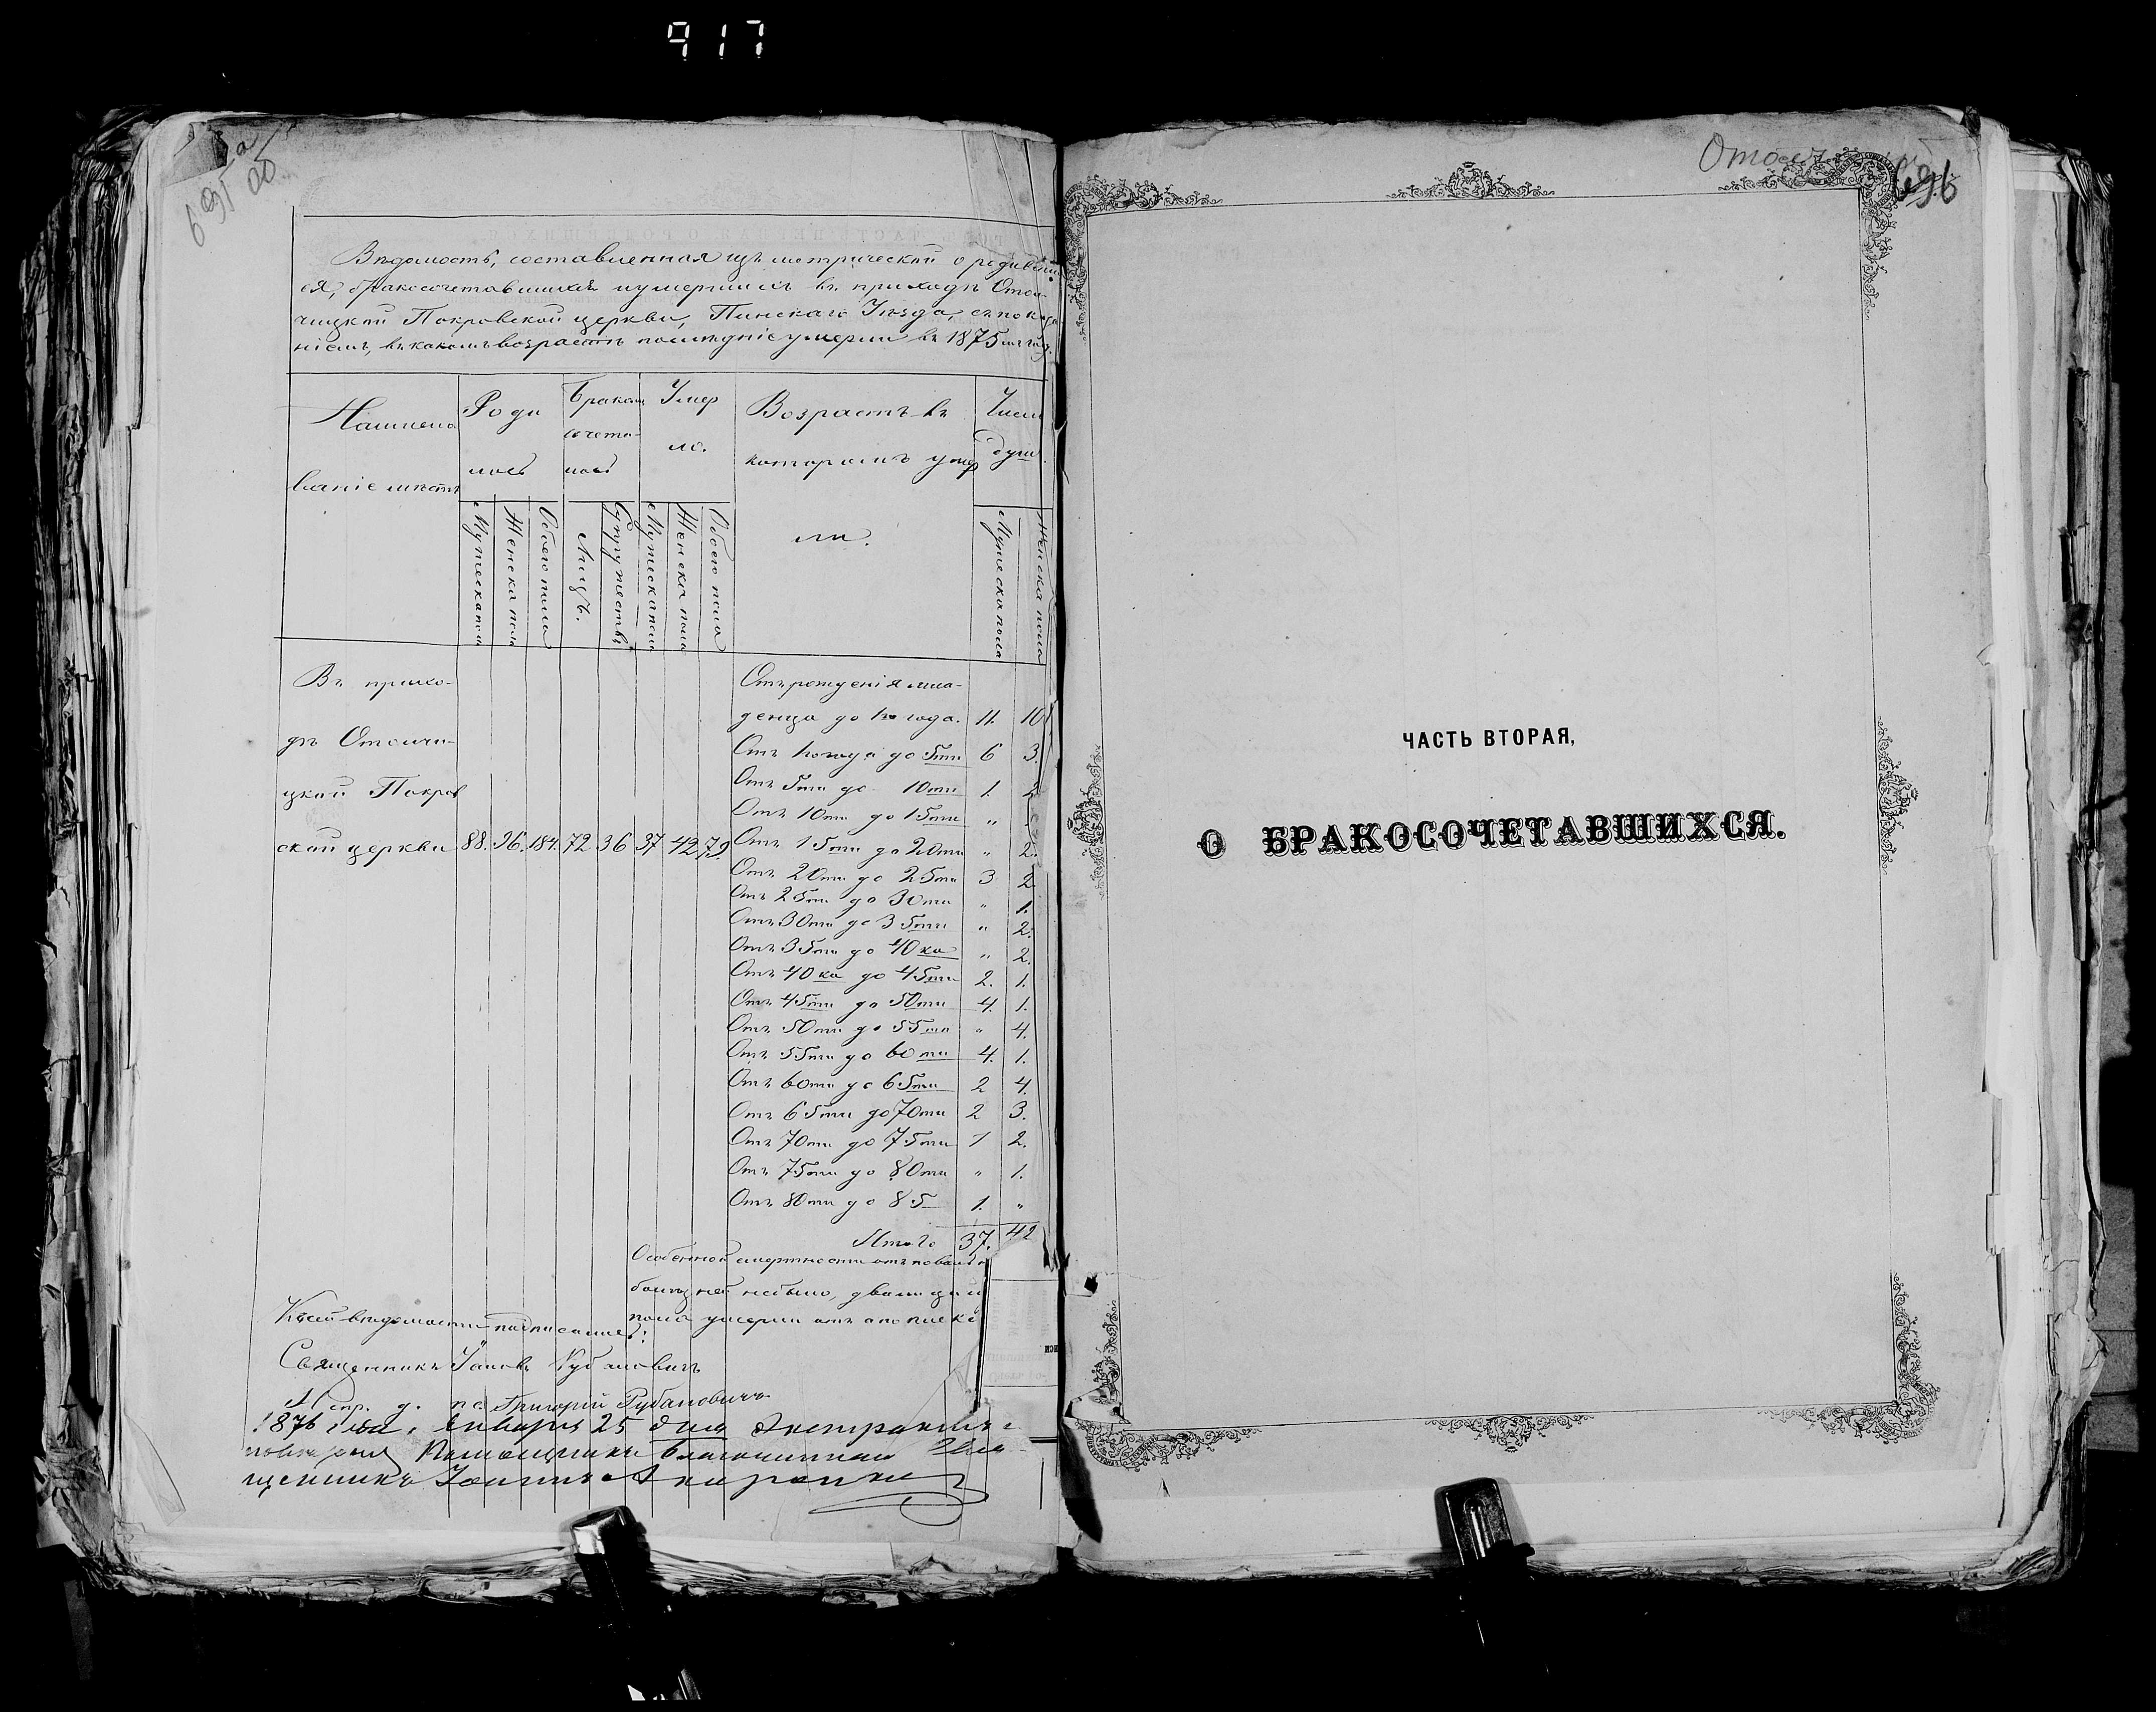 917
695 а
об
Вѣдомость, составленная изъ метрической о родивши
ся, бракосочетавшихся и умершихъ въ приходѣ Отол-
чицкой Покровской церкви, Пинскаго Уѣзда, съ показа
ніемъ, въ какомъ возрастѣ послѣдніе умерли въ 1875мъ году.
Наимено
ваніе мѣстъ
Роди
лось
Бракосо
чета-
лось
Умер
ло.
Возрастъ въ
которомъ умер
ли.
Число
душ.
Мужеска пола
Женска пола
Обоего пола
Лицъ.
Супружествъ
Мужеска пола
Женска пола
Обоего пола
Мужеска пола
Женска пола
Въ прихо-
дѣ Отолчи-
цкой Покров
ской церкви 88. 96. 184. 72. 36 37 42 79.
Отъ рожденія мла-
денца до 1го года. 11. 10
Отъ 1го года до 5ти 6 3.
Отъ 5ти до 10ти 1. 2
Отъ 10ти до 15ти „
Отъ 15ти до 20ти „ 2.
Отъ 20ти до 25ти 3 2.
Отъ 25ти до 30ти „ 1.
Отъ 30ти до 35ти „ 2.
Отъ 35ти до 40ка „ 2.
Отъ 40ка до 45ти 2. 1.
Отъ 45ти до 50ти 4. 1.
Отъ 50ти до 55ти „ 4.
Отъ 55ти до 60ти 4. 1.
Отъ 60ти до 65ти 2 4.
Отъ 65ти до 70ти 2 3.
Отъ 70ти до 75ти 1 2.
Отъ 75ти до 80ти „ 1.
Отъ 80ти до 85 1. „
Итого 37. 42
Особенной смертности отъ повальн
болѣзней небыло, два лица
пола умерли отъ
Къ сей вѣдомости подписались:
Священникъ Іаковъ Рубановичъ
Испр. д. пс. Григорій Рубановичъ
1876 года, Января 25 дня
Помощникъ Благочиннаго Свя-
щенникъ Іоаннъ
696
ЧАСТЬ ВТОРАЯ,
О БРАКОСОЧЕТАВШИХСЯ.